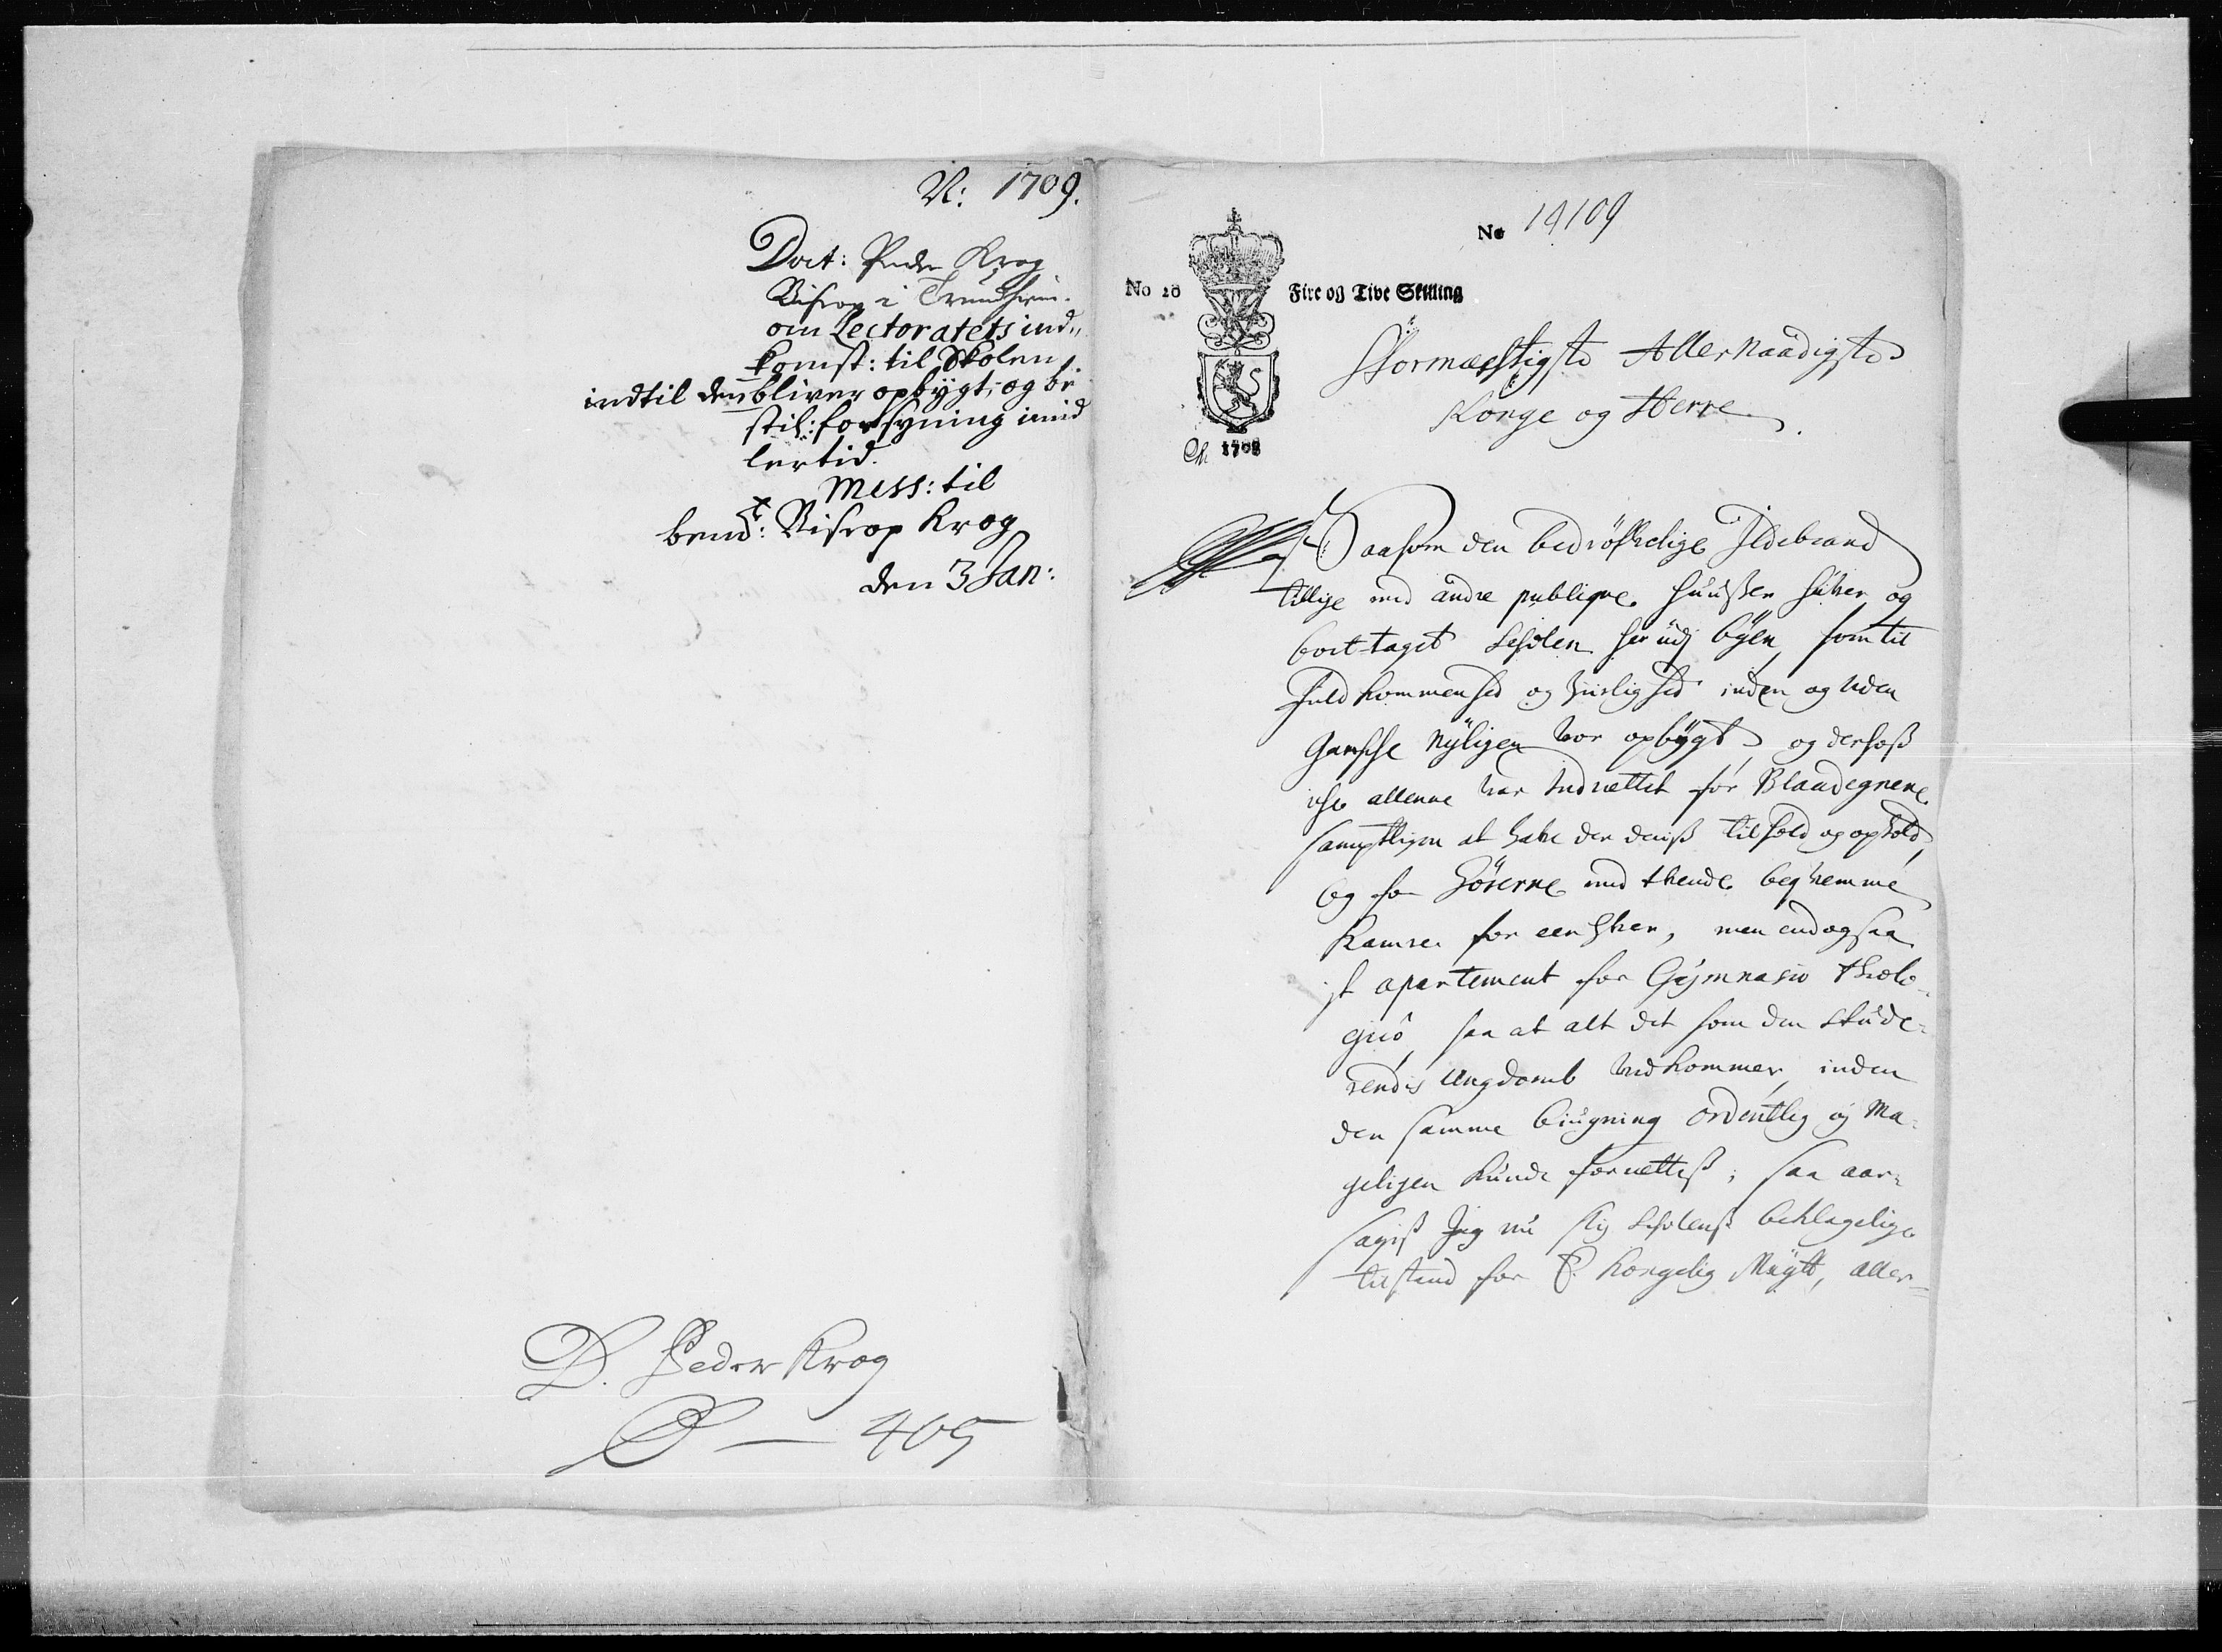 N: 1709.
Doct: Peder Krog
Biscop i Trundhiem.
om Lectoratets ind„
komst: til Skolen
indtil den bliver opbygt, og be
stil: forsyning imid
lertid.
Mess: til
bemt: Biscop Krog
den 3 Jan:
D. Peder Krog
405
No 14109
No 20 Fire og Tive Skilling
1708
Stormægtigste Allernaadigste
Konge og Herre.
Saasom den bedrøffvelige Ildebrand
tillige med andre publiqve Huusser haver og
bort-taget Scholen her udj byen, som til
fuldkommenhed og Ziirlighed inden og uden
Gansche nyligen var opbygt, og derhoß
iche allene var indrettet for Blaadegnene
samptligen at have der deriß tilhold og ophold,
og for Hörerne med tvende beqvemme
Kamre for een hver, men endogsaa
it apartement for Gymnasio Theolo-
gico, saa at alt det som den stude-
rendis Ungdomb vedkommer, inden
den samme biugning ordentlig og Ma-
geligen kunde forretteß; saa aar-
sagiß Jeg nu slig Scholenß beklagelige
tilstand for E. Kongelig Maytt, aller-